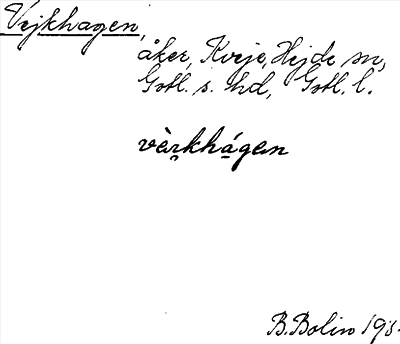 Vejkhagen,
åker, Kveje, Hejde sn,
Gotl. s. hd, Gotl. l.
vèrkhágen
B. Bolin